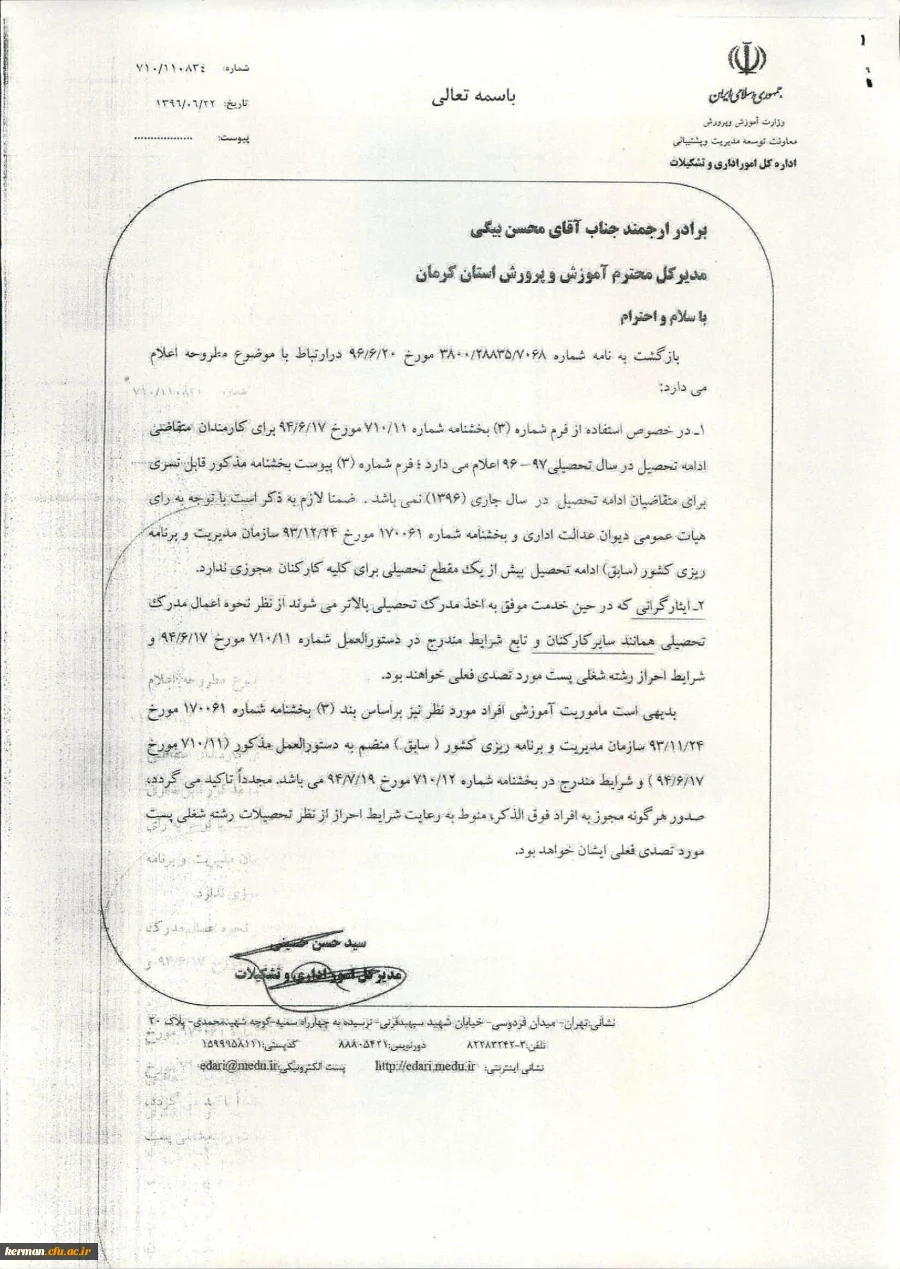 باسمه تعالی
جمهوری اسلامی ایران
وزارت آموزش وپرورش
معاونت توسعه مدیریت وپشتیبانی
اداره کل اموراداری و تشکیلات
شماره: ۷۱۰/۱۱۰۸۳٤
تاریخ: ۱۳۹٦/۰٦/۲۲
پیوست: .................
برادر ارجمند جناب آقای محسن بیگی
مدیرکل محترم آموزش و پرورش استان کرمان
با سلام و احترام
بازگشت به نامه شماره ۳۸۰۰/۲۸۸۳۵/۷۰۶۸ مورخ ۹۶/۶/۲۰ درارتباط با موضوع مطروحه اعلام
می دارد:
۱ـ در خصوص استفاده از فرم شماره (۳) بخشنامه شماره ۷۱۰/۱۱ مورخ ۹۴/۶/۱۷ برای کارمندان متقاضی
ادامه تحصیل در سال تحصیلی۹۷– ۹۶ اعلام می دارد ؛ فرم شماره (۳) پیوست بخشنامه مذکور قابل تسری
برای متقاضیان ادامه تحصیل در سال جاری (۱۳۹۶) نمی باشد . ضمنا لازم به ذکر است با توجه به رای
هیات عمومی دیوان عدالت اداری و بخشنامه شماره ۱۷۰۰۶۱ مورخ ۹۳/۱۲/۲۴ سازمان مدیریت و برنامه
ریزی کشور (سابق) ادامه تحصیل بیش از یک مقطع تحصیلی برای کلیه کارکنان مجوزی ندارد.
۲ـ ایثارگرانی که در حین خدمت موفق به اخذ مدرک تحصیلی بالاتر می شوند از نظر نحوه اعمال مدرک
تحصیلی همانند سایرکارکنان و تابع شرایط مندرج در دستورالعمل شماره ۷۱۰/۱۱ مورخ ۹۴/۶/۱۷ و
شرایط احراز رشته شغلی پست مورد تصدی فعلی خواهند بود.
بدیهی است ماموریت آموزشی افراد مورد نظر نیز براساس بند (۳) بخشنامه شماره ۱۷۰۰۶۱ مورخ
۹۳/۱۱/۲۴ سازمان مدیریت و برنامه ریزی کشور ( سابق ) منضم به دستورالعمل مذکور (۷۱۰/۱۱ مورخ
۹۴/۶/۱۷ ) و شرایط مندرج در بخشنامه شماره ۷۱۰/۱۲ مورخ ۹۴/۷/۱۹ می باشد. مجدداً تاکید می گردد،
صدور هر گونه مجوز به افراد فوق الذکر، منوط به رعایت شرایط احراز از نظر تحصیلات رشته شغلی پست
مورد تصدی فعلی ایشان خواهد بود.
سید حسن حسینی
مدیر کل امور اداری و تشکیلات
نشانی:تهران- میدان فردوسی- خیابان شهید سپهبدقرنی- نرسیده به چهارراه سمیه-کوچه شهیدمحمدی- پلاک ۲۰
تلفن:۳-۸۲۲۸۳۲۴۲ دورنویس:۸۸۸۰۵۴۲۱ کدپستی:۱۵۹۹۹۵۸۱۱۱
نشانی اینترنتی: http://edari.medu.ir پست الکترونیکی:edari@medu.ir
kerman.cfu.ac.ir